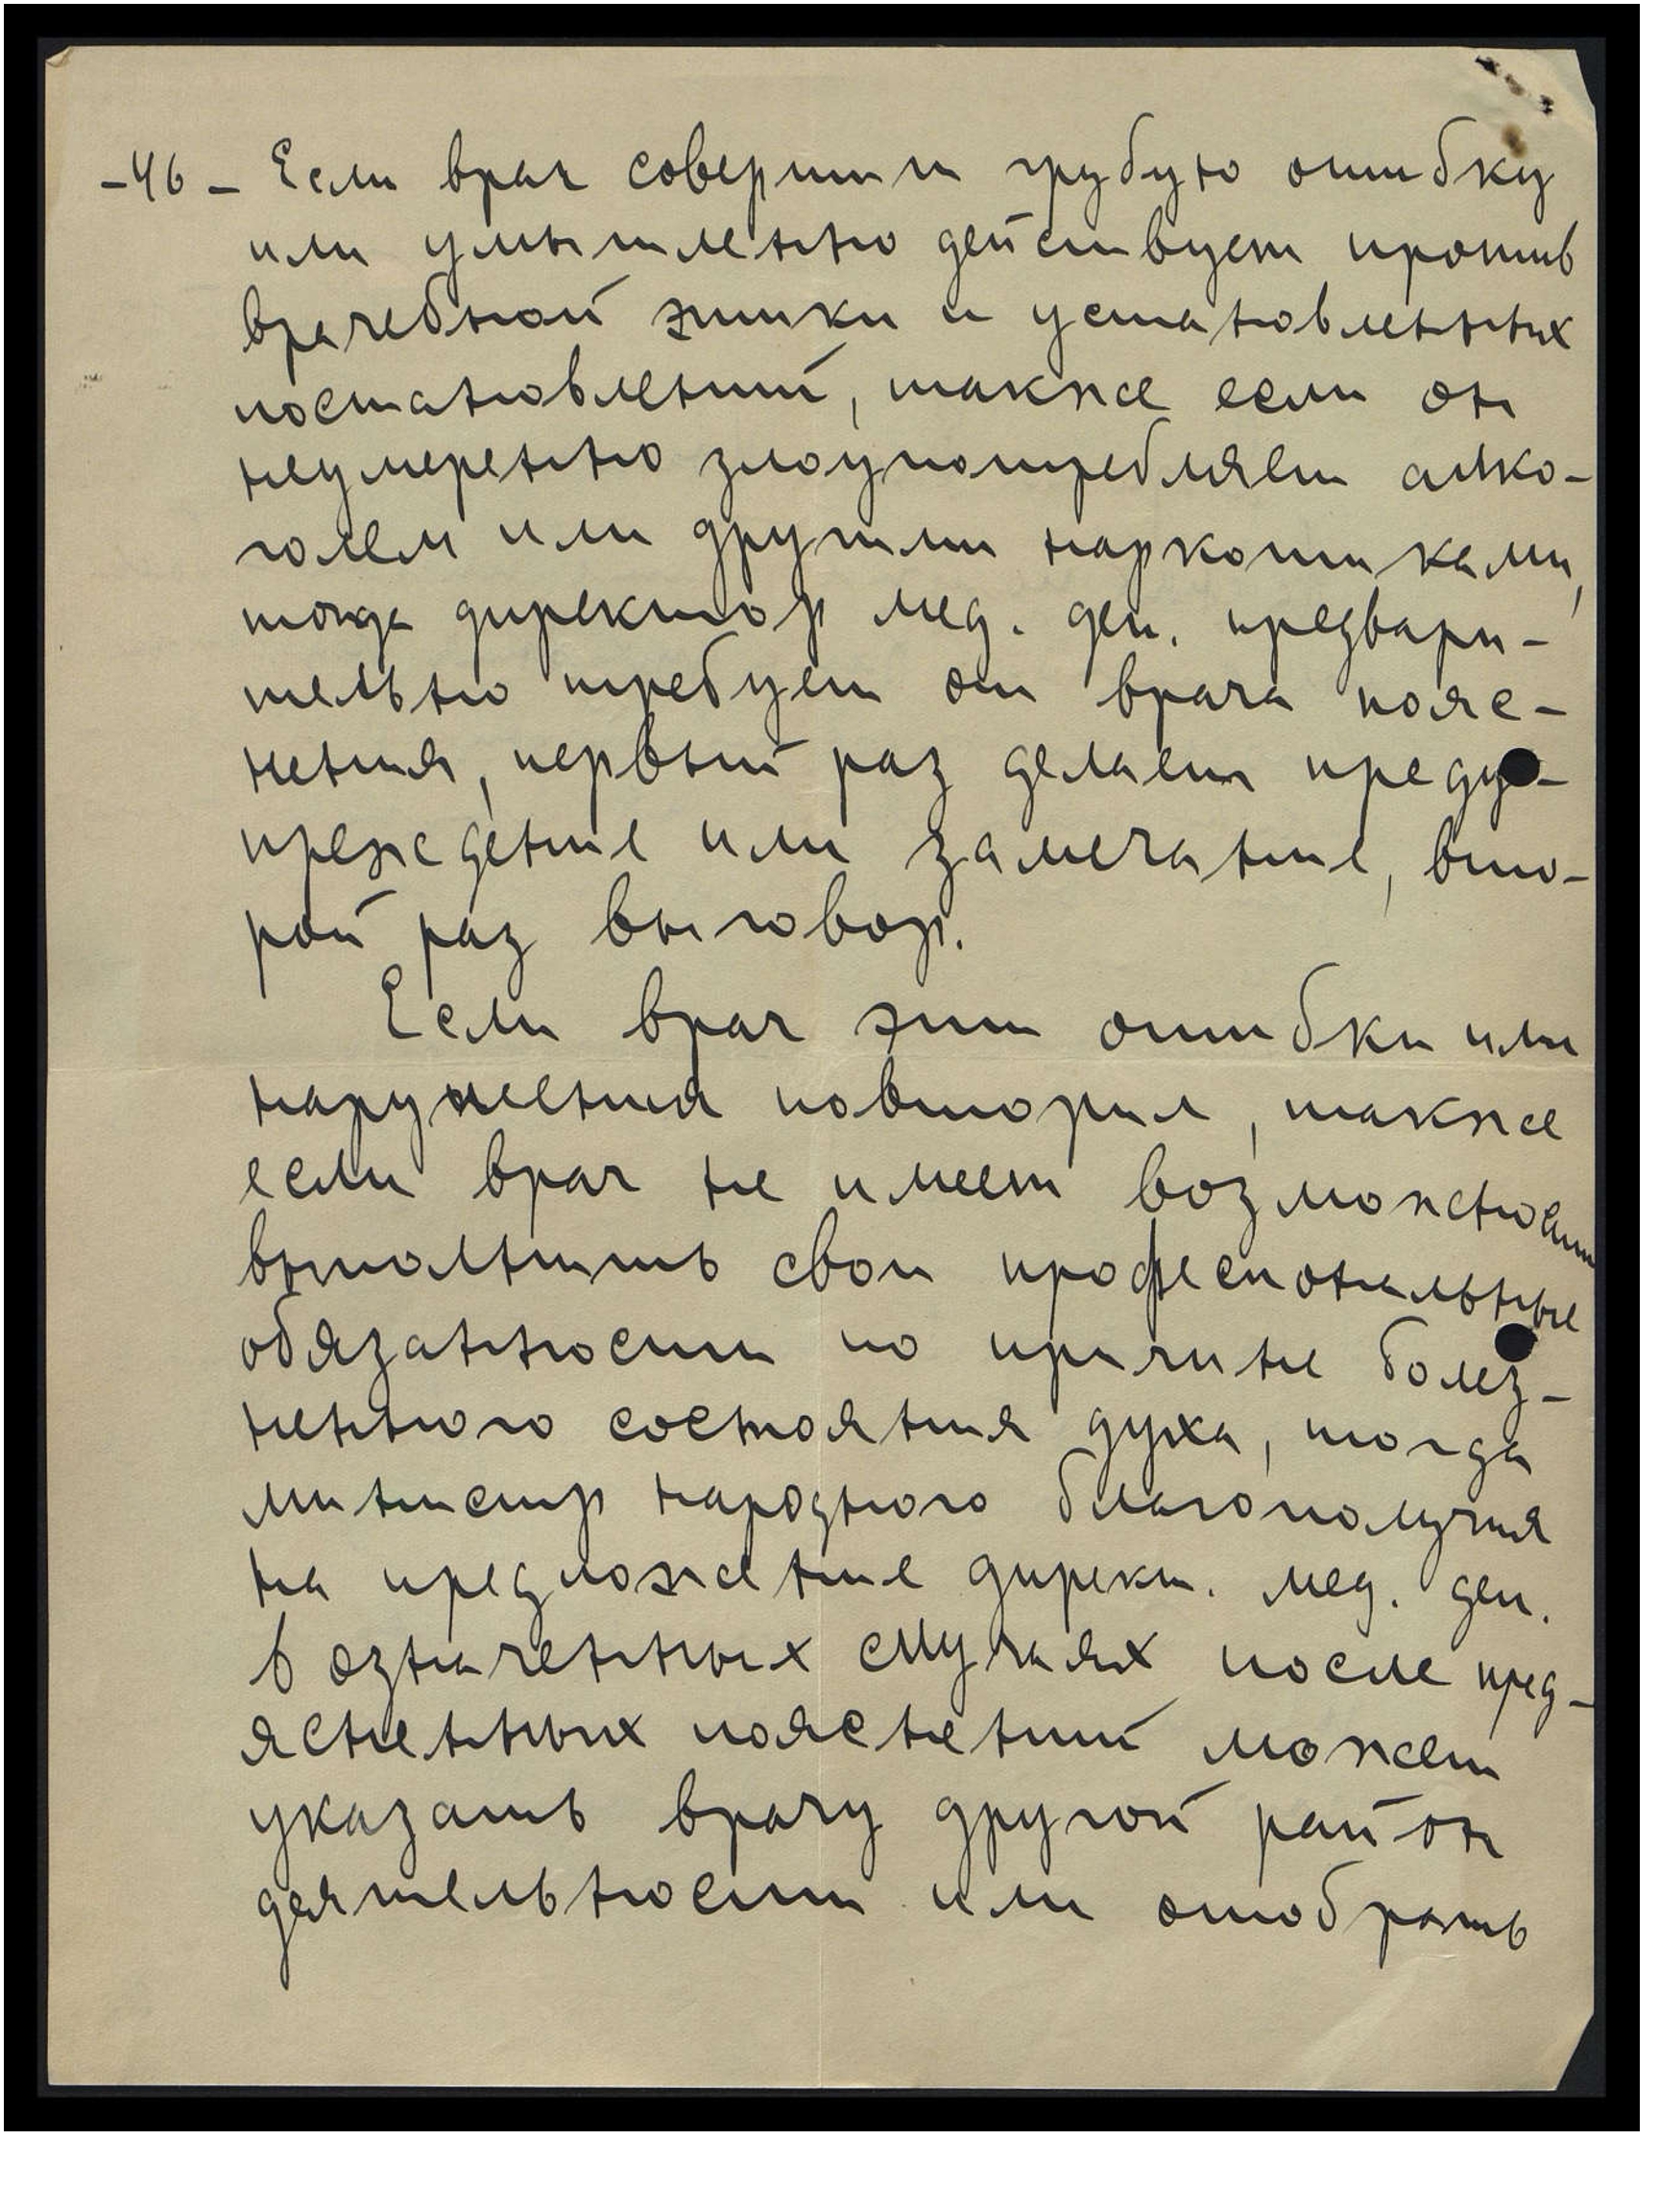 -46- Если врач совершил грубую ошибку
или умышленно действует против
врачебной этики и установленных
постановлений, также если он
неумеренно злоупотребляет алко-
голем или другими наркотиками,
тогда директор мед. деп. предвари-
тельно требует от врача пояс-
нения, первый раз делает преду-
преждение или замечание, вто-
рой раз выговор.
Если врач эти ошибки или
нарушения повторил, также
если врач не имеет возможности
выполнить свои професиональные
обязанности по причине болез-
ненного состояния духа, тогда
министр народного благополучия
на предложение директ. мед. деп.
в означенных случаях после пред-
ясненных пояснений может
указать врачу другой район
деятельности или отобрать